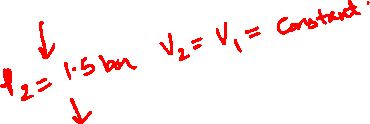 P₂ = 1.5 bar V₂ = V₁ = Constant.